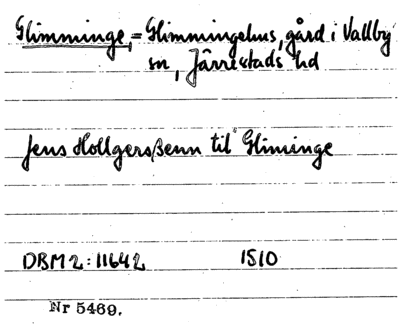 Glimminge, = Glimmingehus, gård i Vallby
sn, Järrestads hd
Jens Hollgersßenn til Gliminge
DBM 2: 11642 1510
Nr 5469.